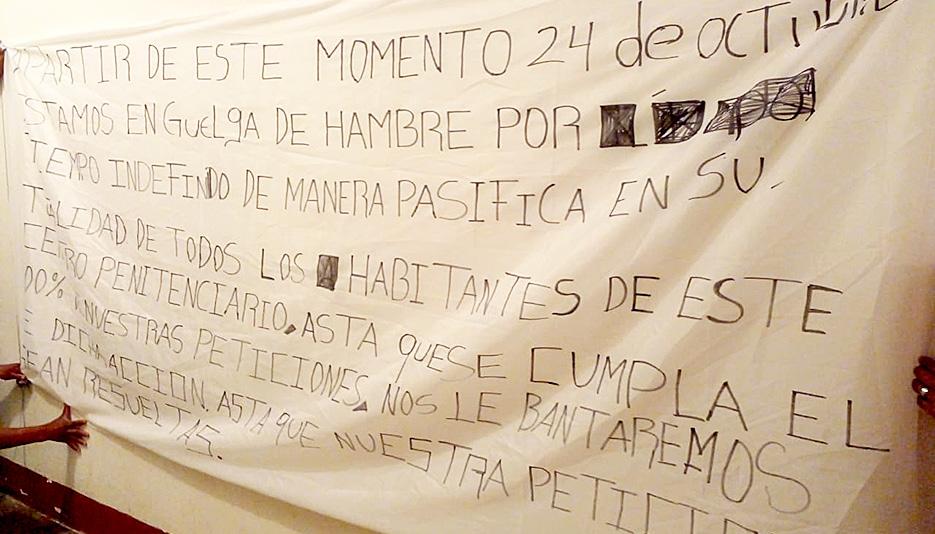 PARTIR DE ESTE MOMENTO 24 de OCTUBRE
STAMOS EN GUELgA DE HAMBRE POR
TEMPO INDEFINDO DE MANERA PASIFICA EN SU.
TALIDAD DE TODOS LOS HABITANTES DE ESTE
CETRO PENITENCIARIO, ASTA QUESE CUMPLA EL
00% NNUESTRAS PETICIONES, NOS LE BANTAREMOS
E DICHA ACCION. ASTA QUE NUESTRA PETICIO
EAN RESUELTAS.